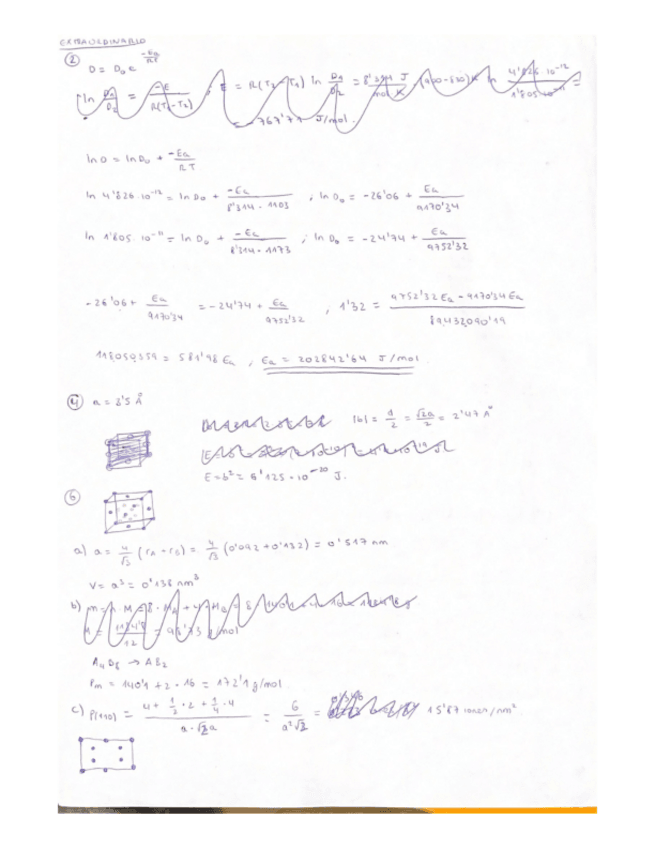 EXTRAORDINARIO
② D = D₀ e^(-Ea/RT)
ln D = ln D₀ + -Ea/RT
ln 4'826·10⁻¹² = ln D₀ + -Ea/8'314·1103 ; ln D₀ = -26'06 + Ea/9170'34
ln 1'805·10⁻¹¹ = ln D₀ + -Ea/8'314·1173 ; ln D₀ = -24'74 + Ea/9752'32
-26'06 + Ea/9170'34 = -24'74 + Ea/9752'32 ; 1'32 = 9752'32 Ea - 9170'34 Ea/89432090'19
118050359 = 581'98 Ea , Ea = 202842'64 J/mol.
④ a = 3'5 Å
|b| = d/2 = √2a/2 = 2'47 Å
E = b² = 6'125·10⁻²⁰ J.
⑥
a) a = 4/√3 (rA + rB) = 4/√3 (0'092 + 0'132) = 0'517 nm
V = a³ = 0'138 nm³
b)
A₄B₈ → AB₂
Pm = 140'1 + 2·16 = 172'1 g/mol
c) P(110) = 4 + 1/2·2 + 1/4·4/a·√2a = 6/a²√2 = 15'87 iones/nm²